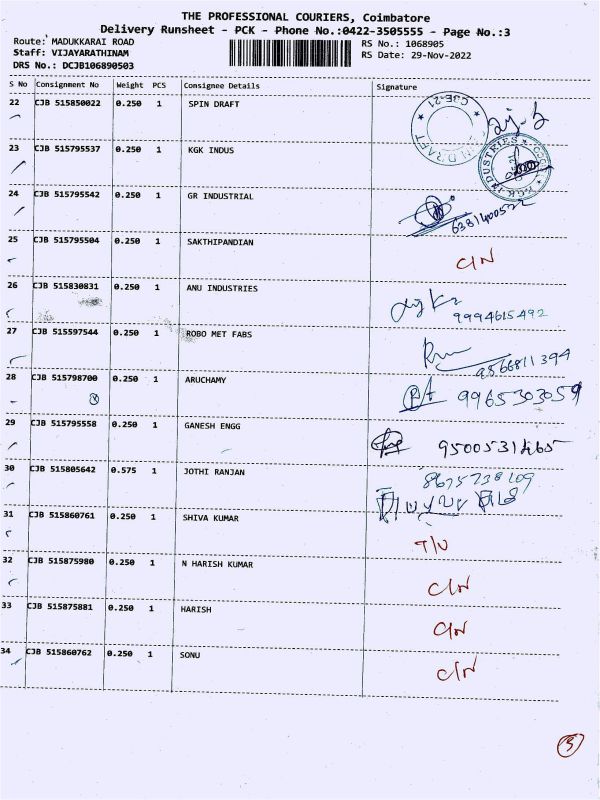 THE PROFESSIONAL COURIERS, Coimbatore
Delivery Runsheet - PCK - Phone No.:0422-3505555 - Page No.:3
Route: MADUKKARAI ROAD RS No.: 1068905
Staff: VIJAYARATHINAM RS Date: 29-Nov-2022
DRS No.: DCJB106890503
S No Consignment No Weight PCS Consignee Details Signature
22 CJB 515850022 0.250 1 SPIN DRAFT
23 CJB 515795537 0.250 1 KGK INDUS
24 CJB 515795542 0.250 1 GR INDUSTRIAL
25 CJB 515795504 0.250 1 SAKTHIPANDIAN C/N
26 CJB 515830831 0.250 1 ANU INDUSTRIES
9994615492
27 CJB 515597544 0.250 1 ROBO MET FABS
9566811394
28 CJB 515798700 0.250 1 ARUCHAMY 9965303059
29 CJB 515795558 0.250 1 GANESH ENGG
30 CJB 515805642 0.575 1 JOTHI RANJAN 8675738109
31 CJB 515860761 0.250 1 SHIVA KUMAR
T/U
32 CJB 515875980 0.250 1 N HARISH KUMAR
C/N
33 CJB 515875881 0.250 1 HARISH
C/N
34 CJB 515860762 0.250 1 SONU
C/N